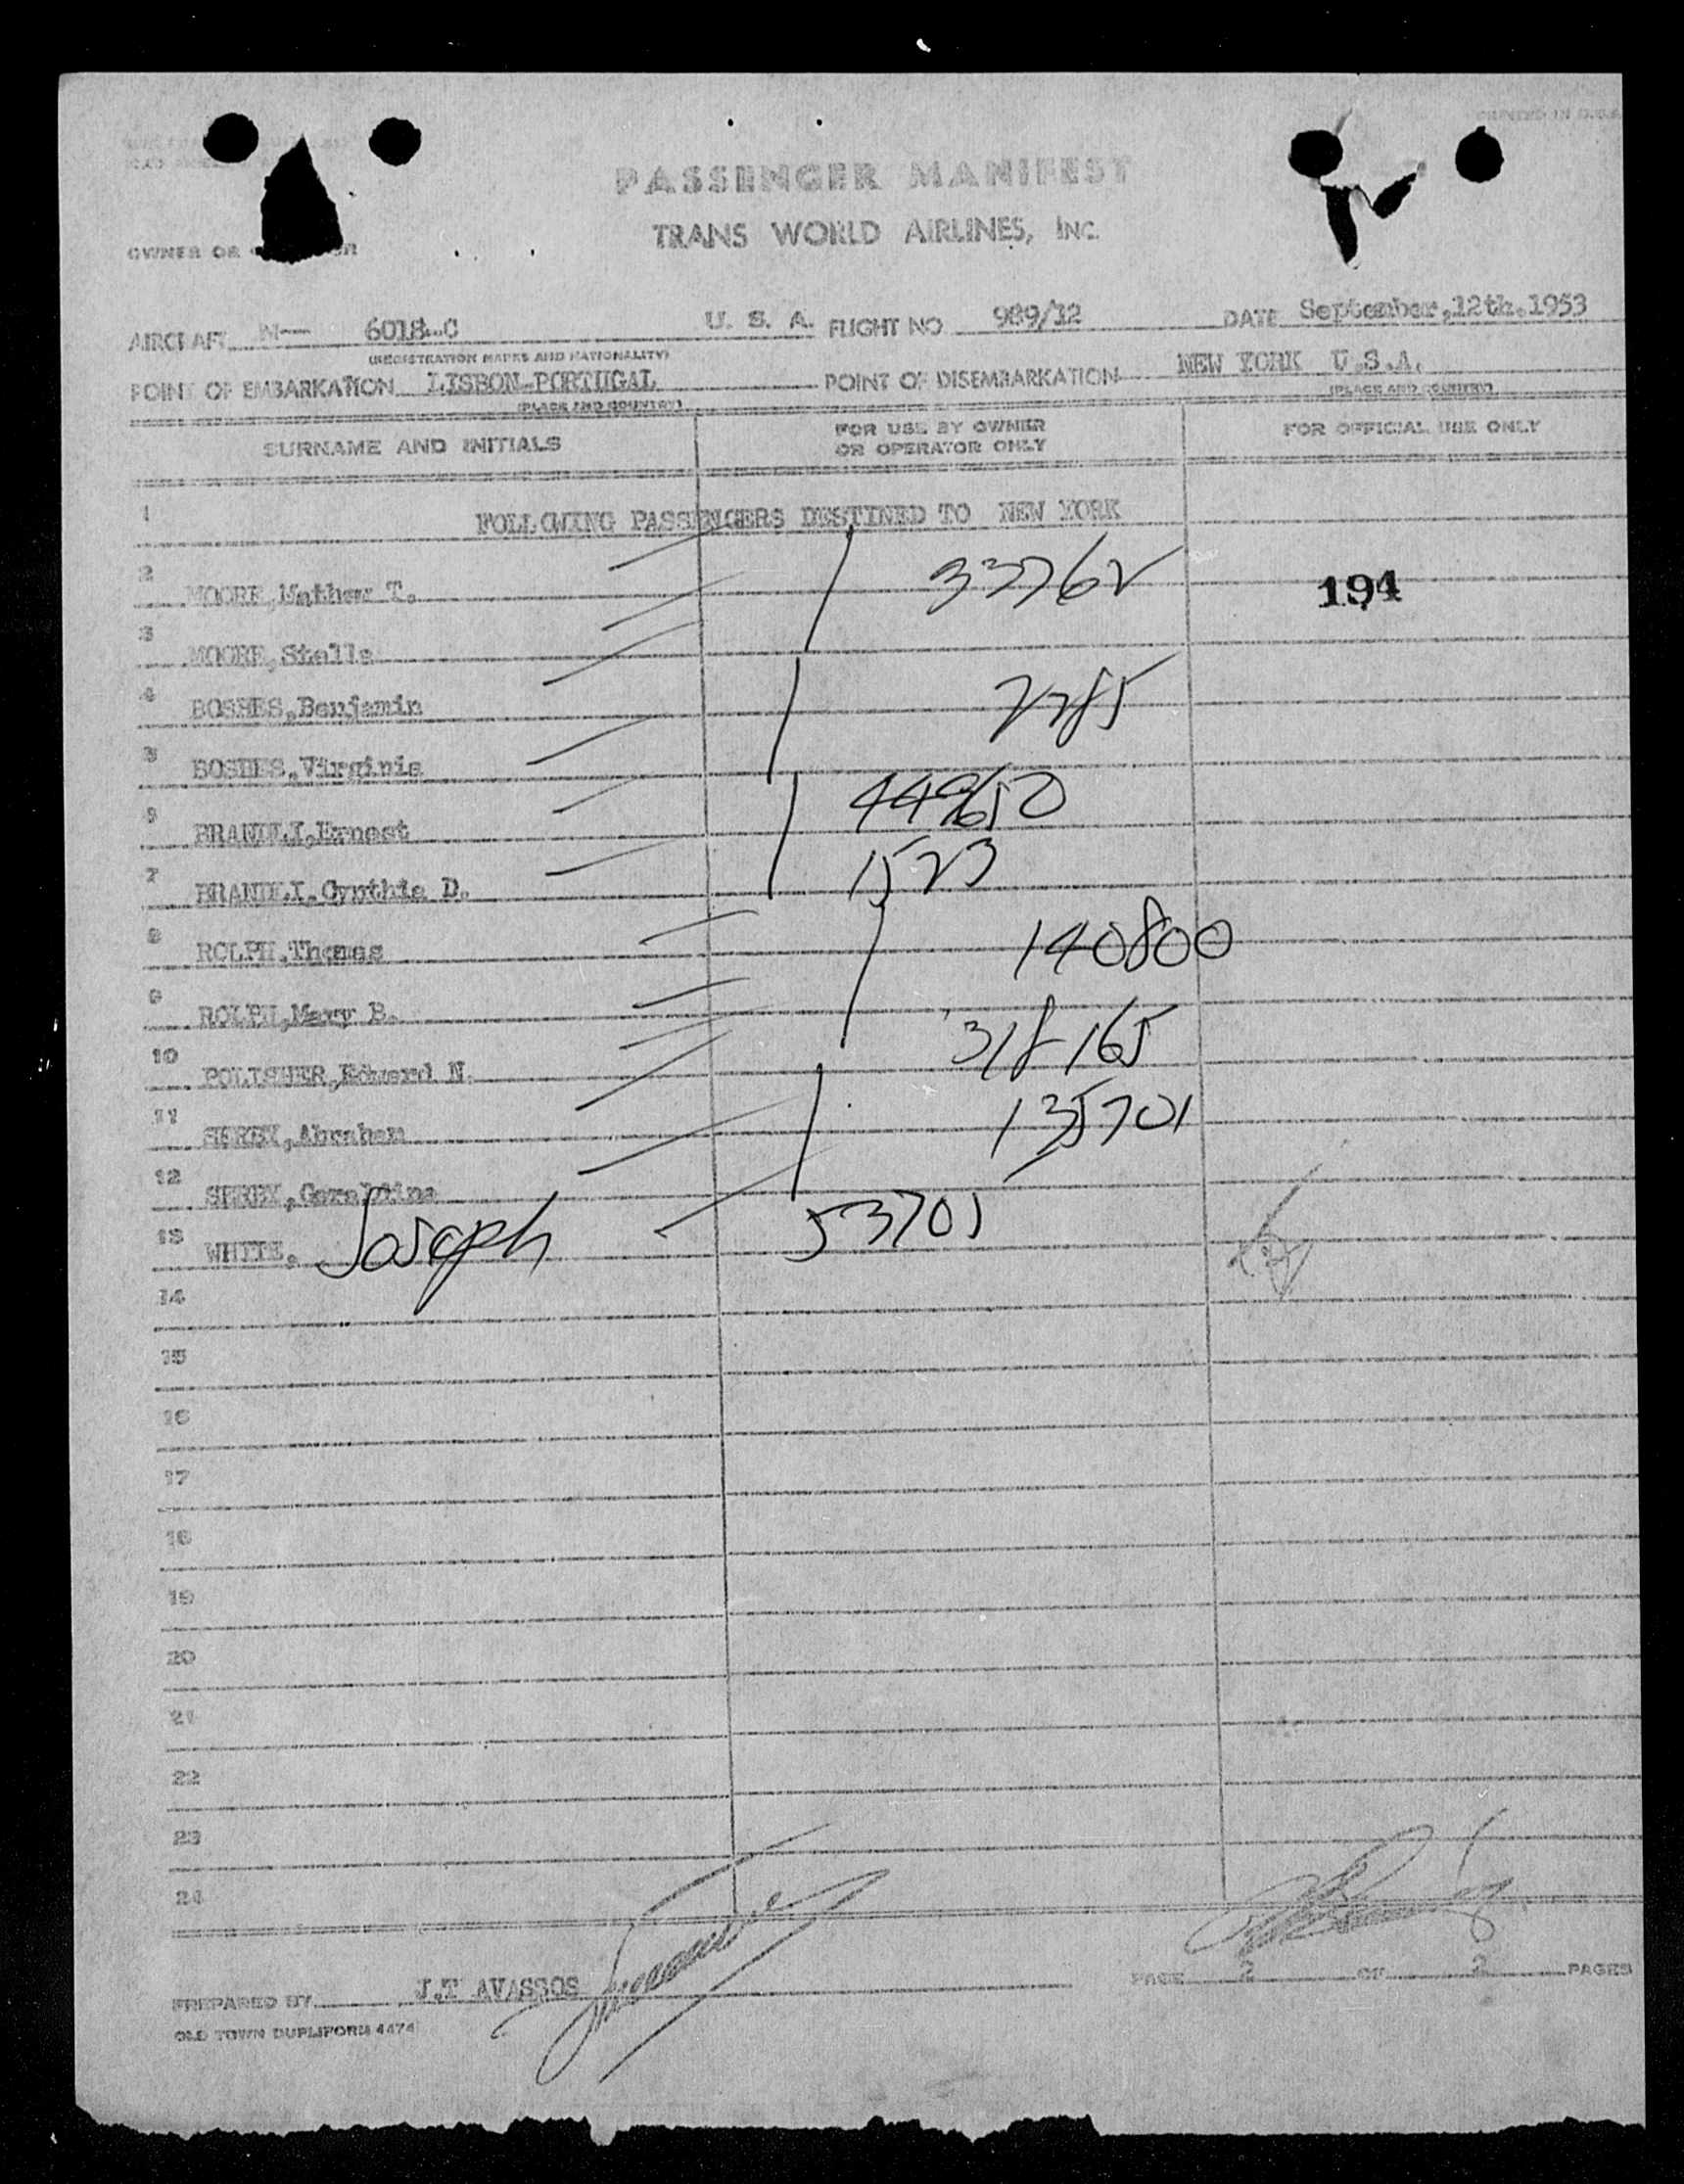 PRINTED IN U.S.A.
PASSENGER MANIFEST
TRANS WORLD AIRLINES, INC.
OWNER OR
AIRCRAFT N— 6018-C U. S. A. FLIGHT NO 989/12 DATE September,12th.1953
(REGISTRATION MARKS AND NATIONALITY)
POINT OF EMBARKATION LISBON-PORTUGAL POINT OF DISEMBARKATION NEW YORK U.S.A.
(PLACE AND COUNTRY) (PLACE AND COUNTRY)
SURNAME AND INITIALS FOR USE BY OWNER OR OPERATOR ONLY FOR OFFICIAL USE ONLY
1 FOLLOWING PASSENGERS DESTINED TO NEW YORK
2 MOORE,Mathew T. 33762 194
3 MOORE,Stella
4 BOSHES,Benjamin 2285
5 BOSHES,Virginia
6 BRANDLI,Ernest
7 BRANDLI,Cynthia D. 1523
8 ROLPH,Thomas 140800
9 ROLPH,Mary B.
10 POLISHER,Edward N. 318165
11 Abraham 135701
12 Geraldine
13 WHITE, Joseph 53701
14
15
16
17
18
19
20
21
22
23
24
PREPARED BY J.T AVASSOS PAGE 2 OF 2 PAGES
OLD TOWN DUPLIFORM 4474